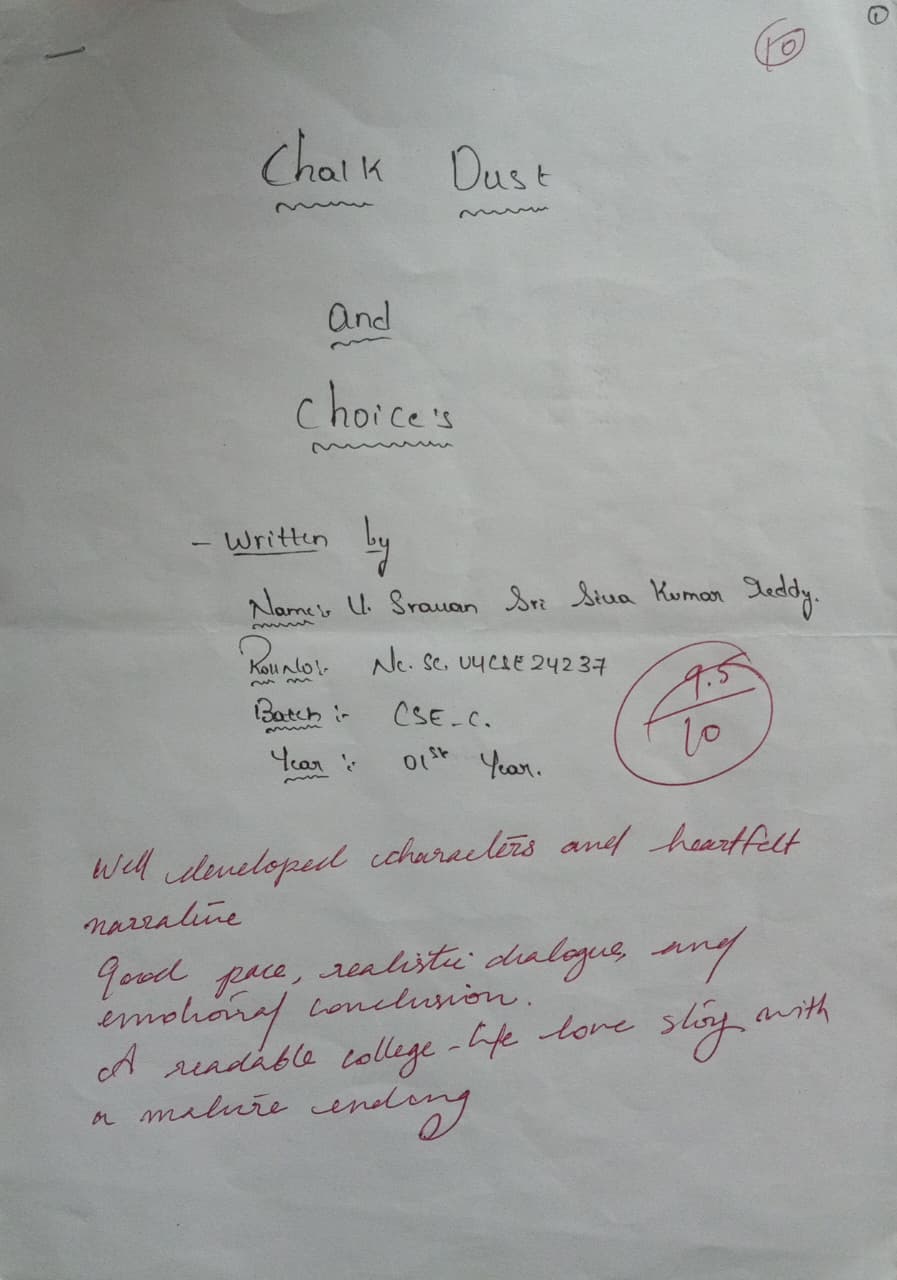 ①
10
Chalk Dust
and
Choice's
- Written by
Name:- U. Sravan Sri Siva Kumar Reddy.
Roll No:- NC. SC. U4CSE24237
Batch :- CSE-C.
Year :- 01st Year.
9.5/10
Well developed characters and heartfelt
narrative
Good pace, realistic dialogue, and
emotional conclusion.
A readable college-life love story with
a mature ending